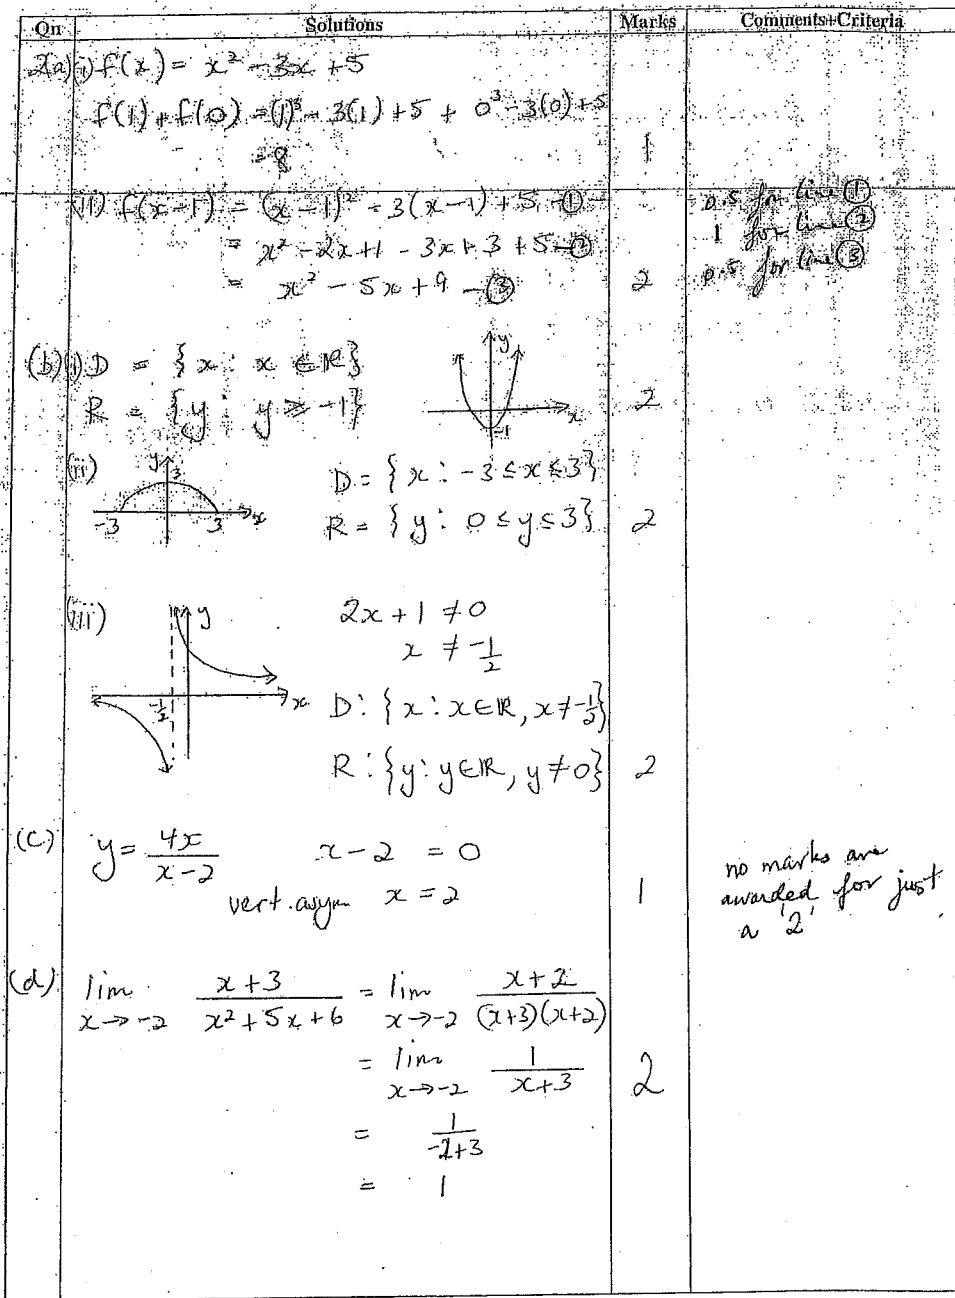 Qn Solutions Marks Comments+Criteria
2(a)(i) f(x) = x² - 3x + 5
f(1) + f(0) = (1)³ - 3(1) + 5 + 0³ - 3(0) + 5
= 8
1
(ii) f(x-1) = (x-1)² - 3(x-1) + 5 - ① 0.5 for line ①
= x² - 2x + 1 - 3x + 3 + 5 - ② 1 for line ②
= x² - 5x + 9 - ③ 2 0.5 for line ③
(b)(i) D = {x : x ∈ ℝ} y
R = {y : y ≥ -1} -1 x 2
(ii) y 3 -3 3 x D = {x : -3 ≤ x ≤ 3}
R = {y : 0 ≤ y ≤ 3} 2
(iii) y 2x + 1 ≠ 0
x ≠ -1/2
-1/2 x D : {x : x ∈ ℝ, x ≠ -1/2}
R : {y : y ∈ ℝ, y ≠ 0} 2
(c) y = 4x/(x-2) x - 2 = 0
vert. asym x = 2 1
no marks are
awarded for just
a '2'
(d) lim x→-2 (x+3)/(x²+5x+6) = lim x→-2 (x+2)/((x+3)(x+2))
= lim x→-2 1/(x+3) 2
= 1/(-2+3)
= 1